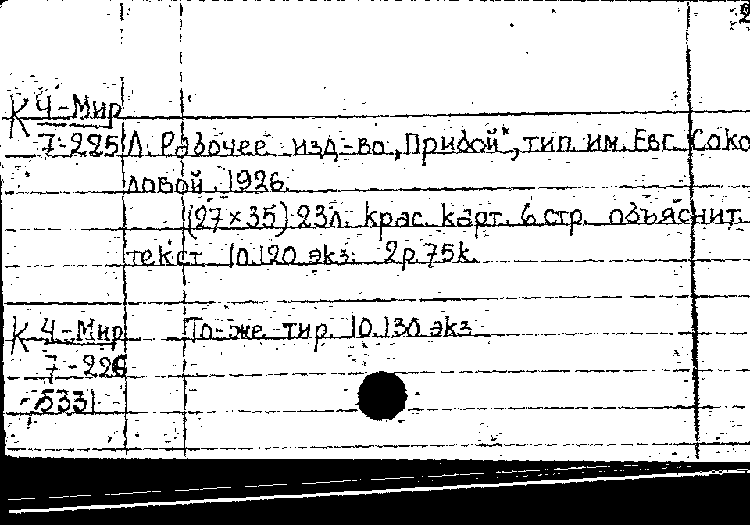 К 4-Мир
7-225 Л. Рабочее изд-во „Прибой", тип. им. Евг. Соко
ловой. 1926.
(27×35) 23л. крас. карт. 6 стр. объяснит.
текст 10.120 экз. 2р.75к.
К 4-Мир То-же тир. 10.130 экз
7-226
5331